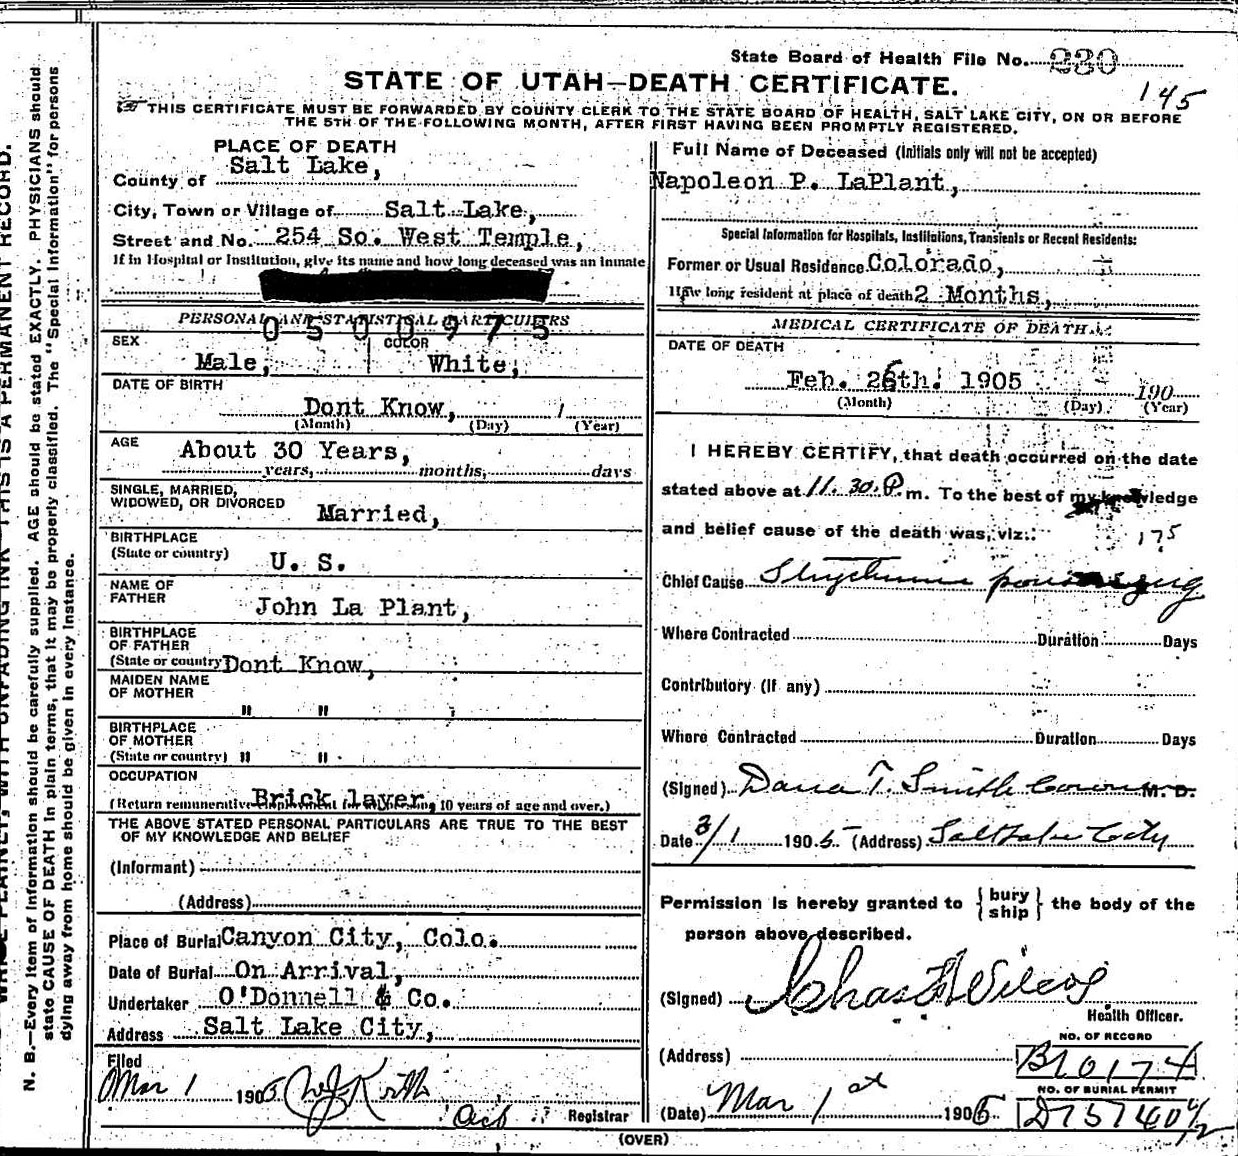 State Board of Health File No. 230
145
STATE OF UTAH—DEATH CERTIFICATE.
THIS CERTIFICATE MUST BE FORWARDED BY COUNTY CLERK TO THE STATE BOARD OF HEALTH, SALT LAKE CITY, ON OR BEFORE
THE 5TH OF THE FOLLOWING MONTH, AFTER FIRST HAVING BEEN PROMPTLY REGISTERED.
PLACE OF DEATH
County of Salt Lake,
City, Town or Village of Salt Lake,
Street and No. 254 So. West Temple,
If in Hospital or Institution, give its name and how long deceased was an inmate
PERSONAL AND STATISTICAL PARTICULARS
0500975
SEX Male, COLOR White,
DATE OF BIRTH
Dont Know,
(Month) (Day) (Year)
AGE About 30 Years,
years, months, days
SINGLE, MARRIED,
WIDOWED, OR DIVORCED Married,
BIRTHPLACE
(State or country) U. S.
NAME OF
FATHER John La Plant,
BIRTHPLACE
OF FATHER
(State or country Dont Know,
MAIDEN NAME
OF MOTHER
" "
BIRTHPLACE
OF MOTHER
(State or country) " "
OCCUPATION
Brick layer,
(Return remunerative employment for all persons 10 years of age and over.)
THE ABOVE STATED PERSONAL PARTICULARS ARE TRUE TO THE BEST
OF MY KNOWLEDGE AND BELIEF
(Informant)
(Address)
Place of Burial Canyon City, Colo.
Date of Burial On Arrival,
Undertaker O'Donnell & Co.
Address Salt Lake City,
Filed
Mar 1 1905
Registrar
Full Name of Deceased (Initials only will not be accepted)
Napoleon P. LaPlant,
Special Information for Hospitals, Institutions, Transients or Recent Residents:
Former or Usual Residence Colorado,
How long resident at place of death 2 Months,
MEDICAL CERTIFICATE OF DEATH
DATE OF DEATH
Feb. 26th. 1905 190
(Month) (Day) (Year)
I HEREBY CERTIFY, that death occurred on the date
stated above at 11.30.P.m. To the best of my knowledge
and belief cause of the death was, viz:
175
Chief Cause Strychnine poisoning
Where Contracted Duration Days
Contributory (if any)
Where Contracted Duration Days
(Signed) Dana T. Smith Coroner M. D.
Date 3/1 1905 (Address) Salt Lake City
Permission is hereby granted to {bury ship} the body of the
person above described.
(Signed) Chas F Wilcox
Health Officer.
(Address)
NO. OF RECORD
B10174
NO. OF BURIAL PERMIT
D75740 1/2
(Date) Mar 1st 1905
(OVER)
N. B.—Every item of information should be carefully supplied. AGE should be stated EXACTLY. PHYSICIANS should
state CAUSE OF DEATH in plain terms, that it may be properly classified. The "Special Information" for persons
dying away from home should be given in every instance.
WRITE PLAINLY, WITH UNFADING INK—THIS IS A PERMANENT RECORD.